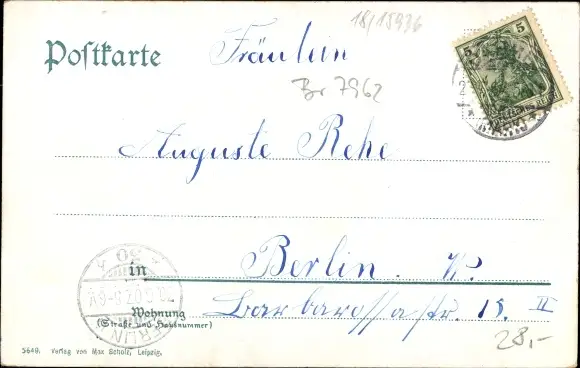 18/15936
Postkarte
Fräulein
Br 7962
5
5
Auguste Rehe
in Berlin. W.
Wohnung
(Straße und Hausnummer)
Barbarossastr. 15. II
BERLIN
28,-
5649. Verlag von Max Scholz, Leipzig.